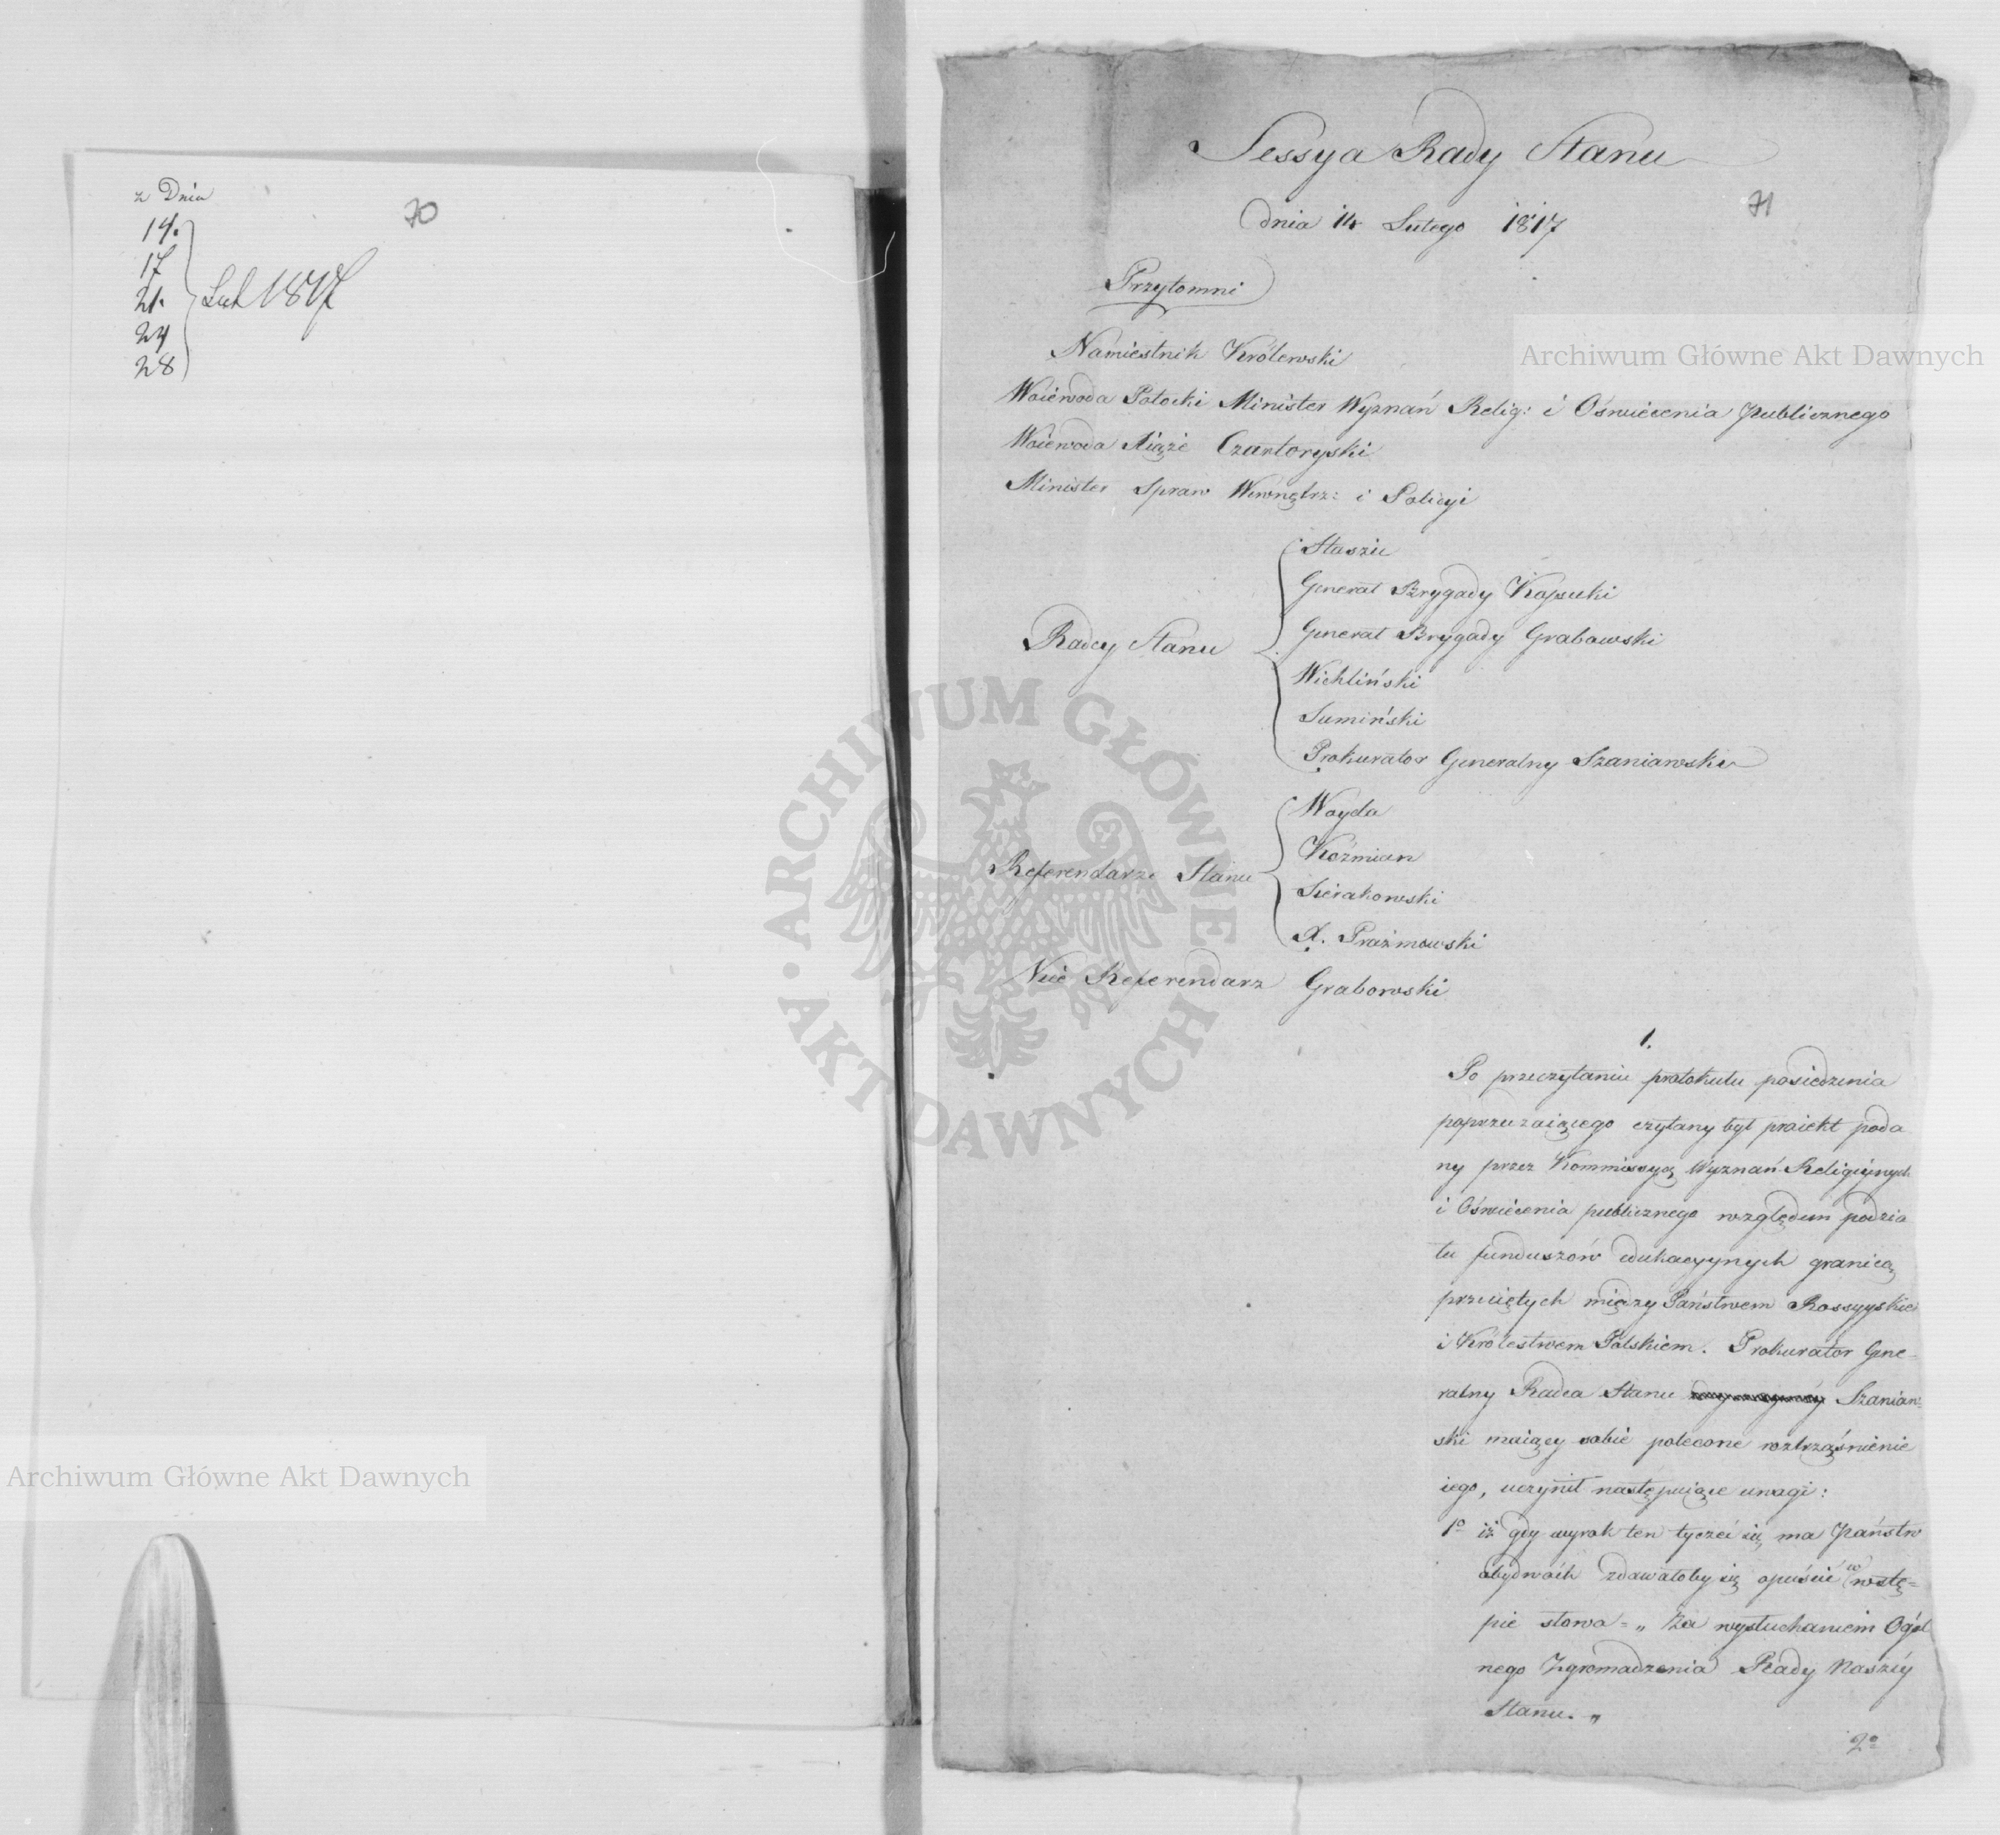 z Dnia
70
14.
17
21.
24
28
Lut 1817
Sessya Rady Stanu
71
dnia 14 Lutego 1817
Przytomni
Namiestnik Królewski
Woiewoda Potocki Minister Wyznań Relig: i Oświecenia Publicznego
Woiewoda Xiąże Czartoryski
Minister Spraw Wewnętrz: i Policyi
Radcy Stanu
Staszic
Generał Brygady Kossecki
Generał Brygady Grabowski
Wichliński
Sumiński
Prokurator Generalny Szaniawski
Referendarze Stanu
Woyda
Koźmian
Sierakowski
X. Prażmowski
Vice Referendarz Grabowski
1.
Po przeczytaniu protokułu posiedzenia
poprzedzaiącego czytany był proiekt poda
ny przez Kommissyą Wyznań Religiynych
i Oświecenia publicznego względem podzia
łu funduszów edukacyynych granicą
przeciętych między Państwem Rossyyskiem
i Królestwem Polskiem. Prokurator Gene-
ralny Radca Stanu Szaniaw-
ski maiący sobie polecone roztrząśnienie
iego, uczynił następuiące uwagi:
1º iż gdy wyrok ten tyczeć się ma Państw
obydwóch zdawałoby się opuścić w wstę-
pie słowa = „ Za wysłuchaniem Ogól
nego Zgromadzenia Rady Naszéy
Stanu. „
2º
Archiwum Główne Akt Dawnych
Archiwum Główne Akt Dawnych
ARCHIWUM GŁÓWNE AKT DAWNYCH